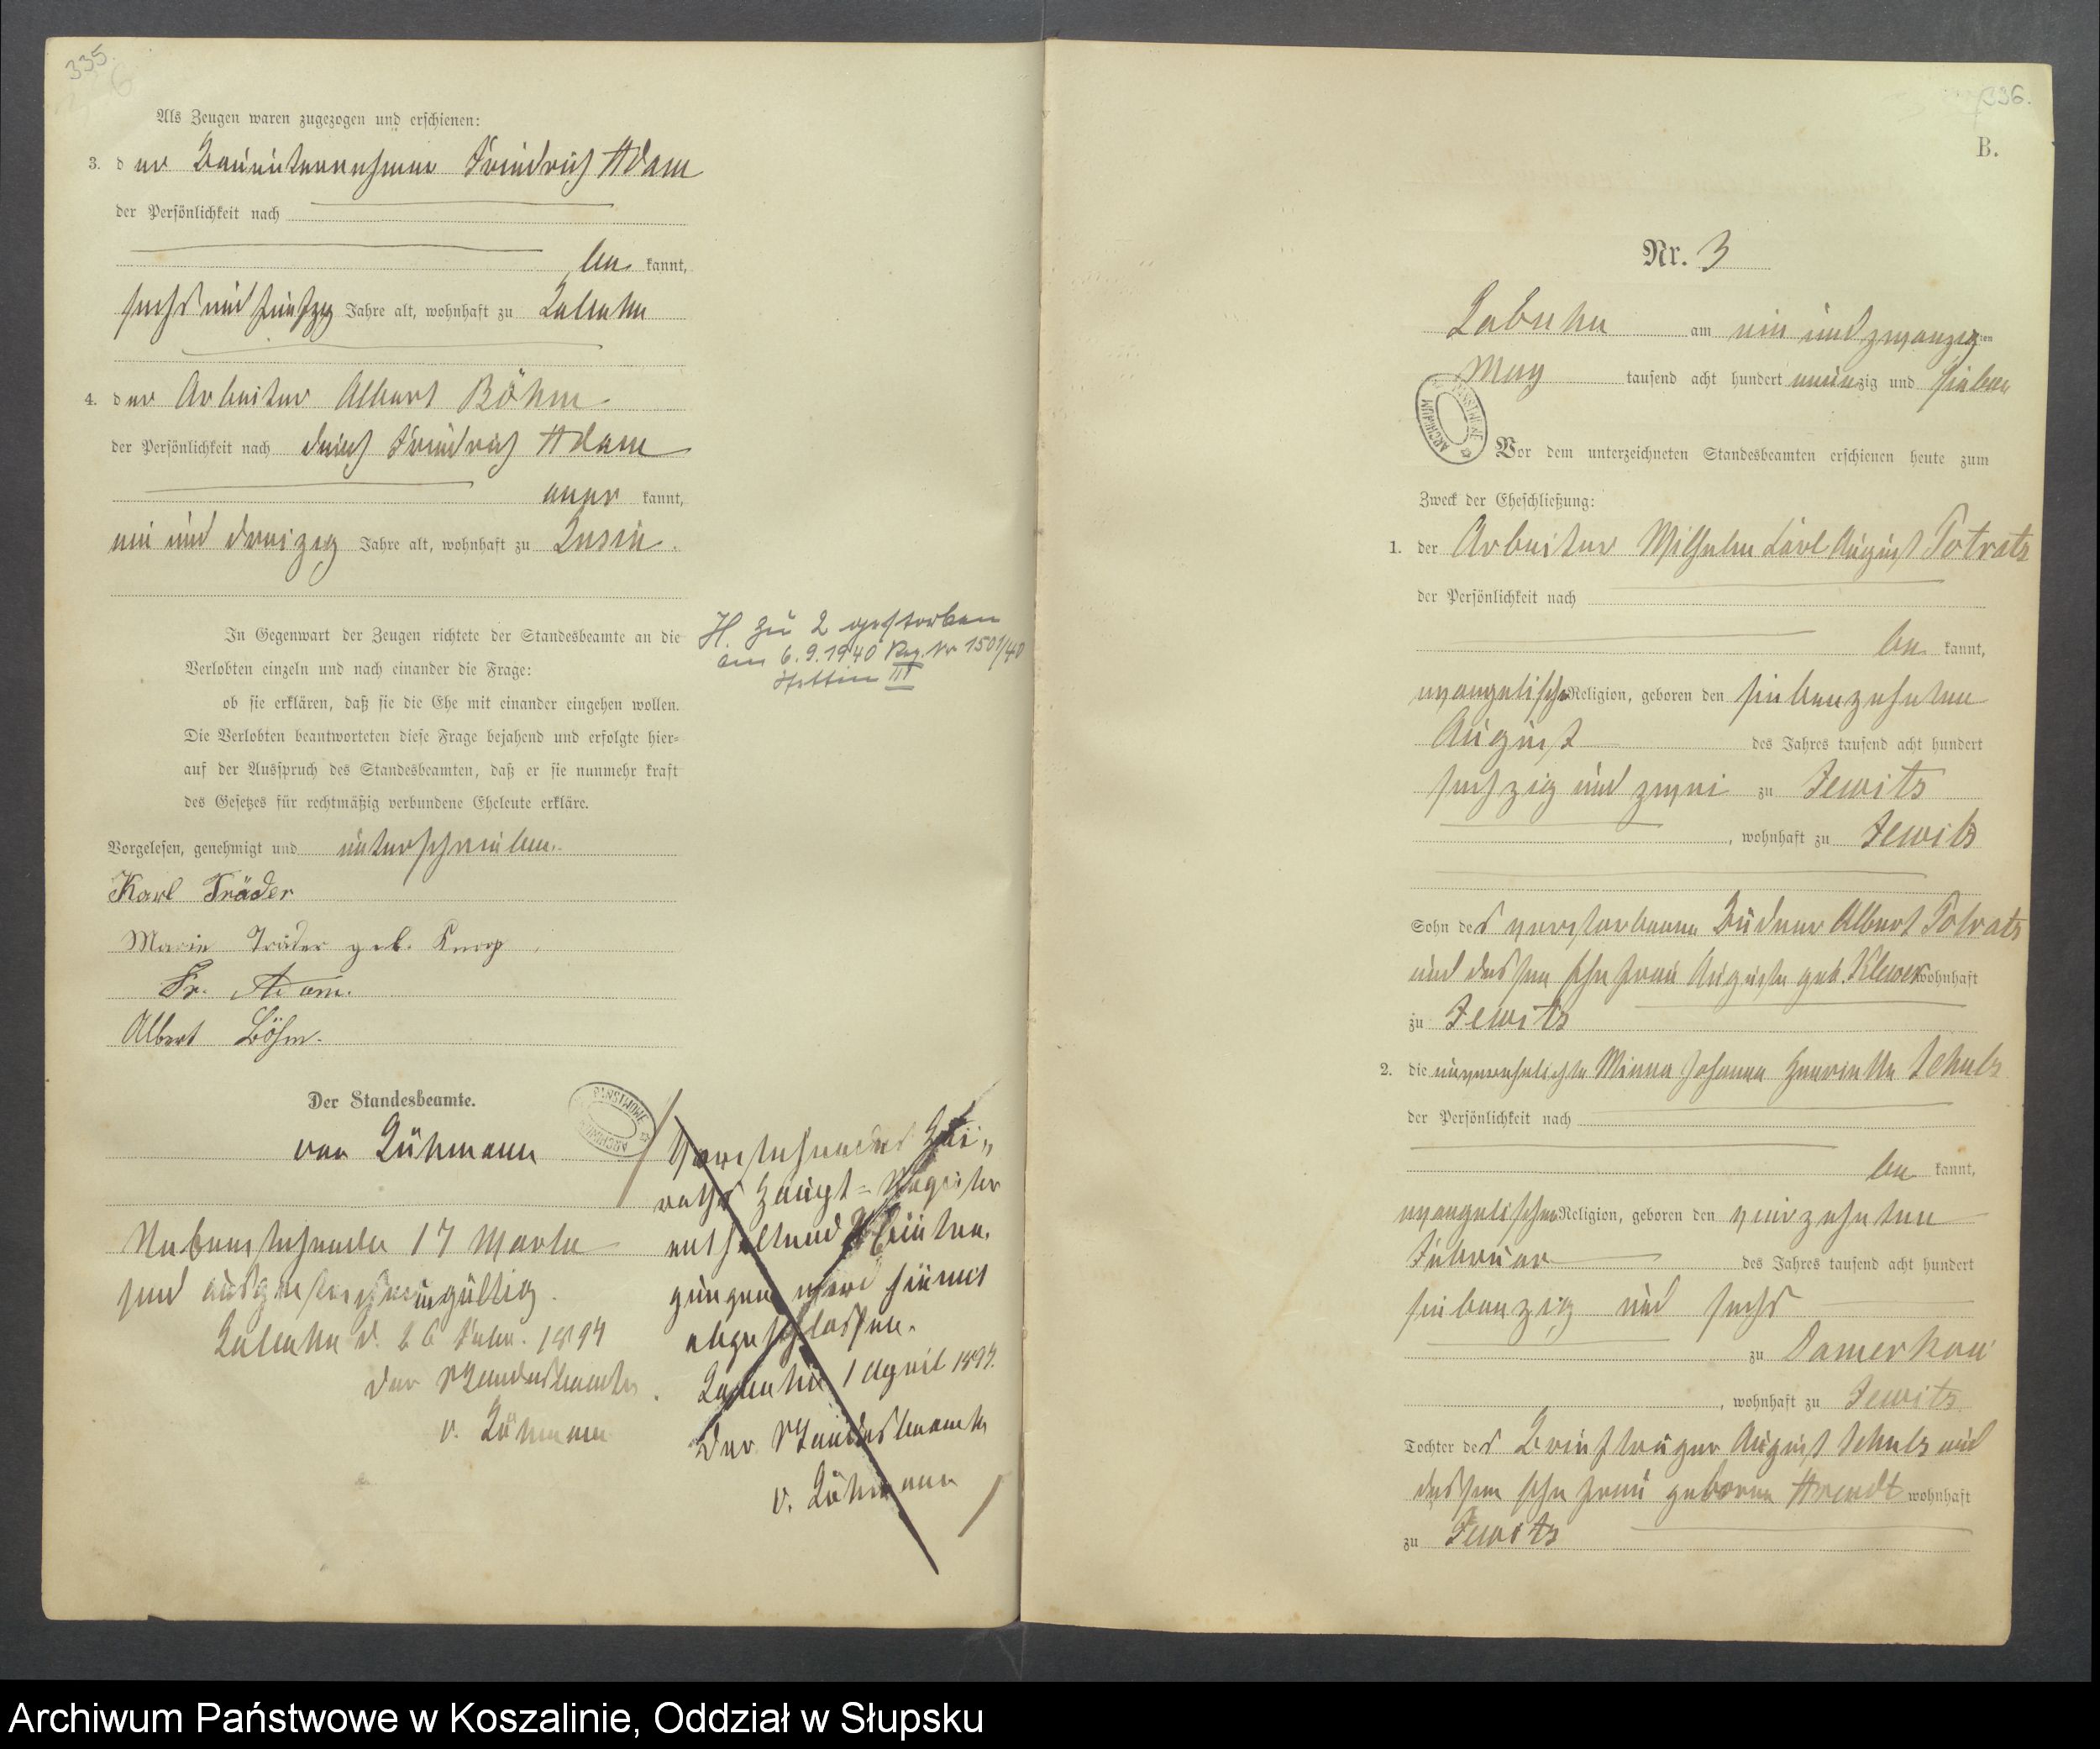 335.
Als Zeugen waren zugezogen und erschienen:
3. der Bauunternehmer Friedrich Adam
der Persönlichkeit nach
be kannt,
sechs und fünfzig Jahre alt, wohnhaft zu Labuhn
4. der Arbeiter Albert Böhm
der Persönlichkeit nach durch Friedrich Adam
aner kannt,
ein und dreizig Jahre alt, wohnhaft zu Zusin.
In Gegenwart der Zeugen richtete der Standesbeamte an die
Verlobten einzeln und nach einander die Frage:
ob sie erklären, daß sie die Ehe mit einander eingehen wollen.
Die Verlobten beantworteten diese Frage bejahend und erfolgte hier-
auf der Ausspruch des Standesbeamten, daß er sie nunmehr kraft
des Gesetzes für rechtmäßig verbundene Eheleute erkläre.
H. zu 2 gestorben
am 6.9.1940 Reg. Nr 1501/40
Stettin III
Vorgelesen, genehmigt und unterschrieben.
Karl Träder
Marie Träder geb. Knop
Fr. Adam.
Albert Böhm.
Der Standesbeamte.
von Zühmann
Nebenstehende 17 Worte
sind ungültig.
Labuhn d. 26 Febr. 1897
Der Standesbeamte.
v. Zühmann
Vorstehendes Hei-
raths Haupt-Register
enthaltend 2 Eintra-
gungen wird hiermit
abgeschlossen.
Labuhn 1 April 1897.
Der Standesbeamte
v. Zühmann
336.
B.
Nr. 3
Labuhn am ein und zwanzigsten
May tausend acht hundert neunzig und sieben
ARCHIWUM PAŃSTWOWE
Vor dem unterzeichneten Standesbeamten erschienen heute zum
Zweck der Eheschließung:
1. der Arbeiter Wilhelm Carl August Potratz
der Persönlichkeit nach
be kannt,
evangelischer Religion, geboren den siebenzehnten
August des Jahres tausend acht hundert
sechzig und zwei zu Jewitz
, wohnhaft zu Jewitz
Sohn des verstorbenen Büdner Albert Potratz
und dessen Ehefrau Auguste geb. Klewer wohnhaft
zu Jewitz
2. die unverehelichte Minna Johanna Henriette Schulz
der Persönlichkeit nach
be kannt,
evangelischer Religion, geboren den vierzehnten
Februar des Jahres tausend acht hundert
siebenzig und sechs
zu Damerkau
, wohnhaft zu Jewitz
Tochter des Briefträger August Schulz und
dessen Ehefrau geborene Arendt wohnhaft
zu Jewitz
Archiwum Państwowe w Koszalinie, Oddział w Słupsku